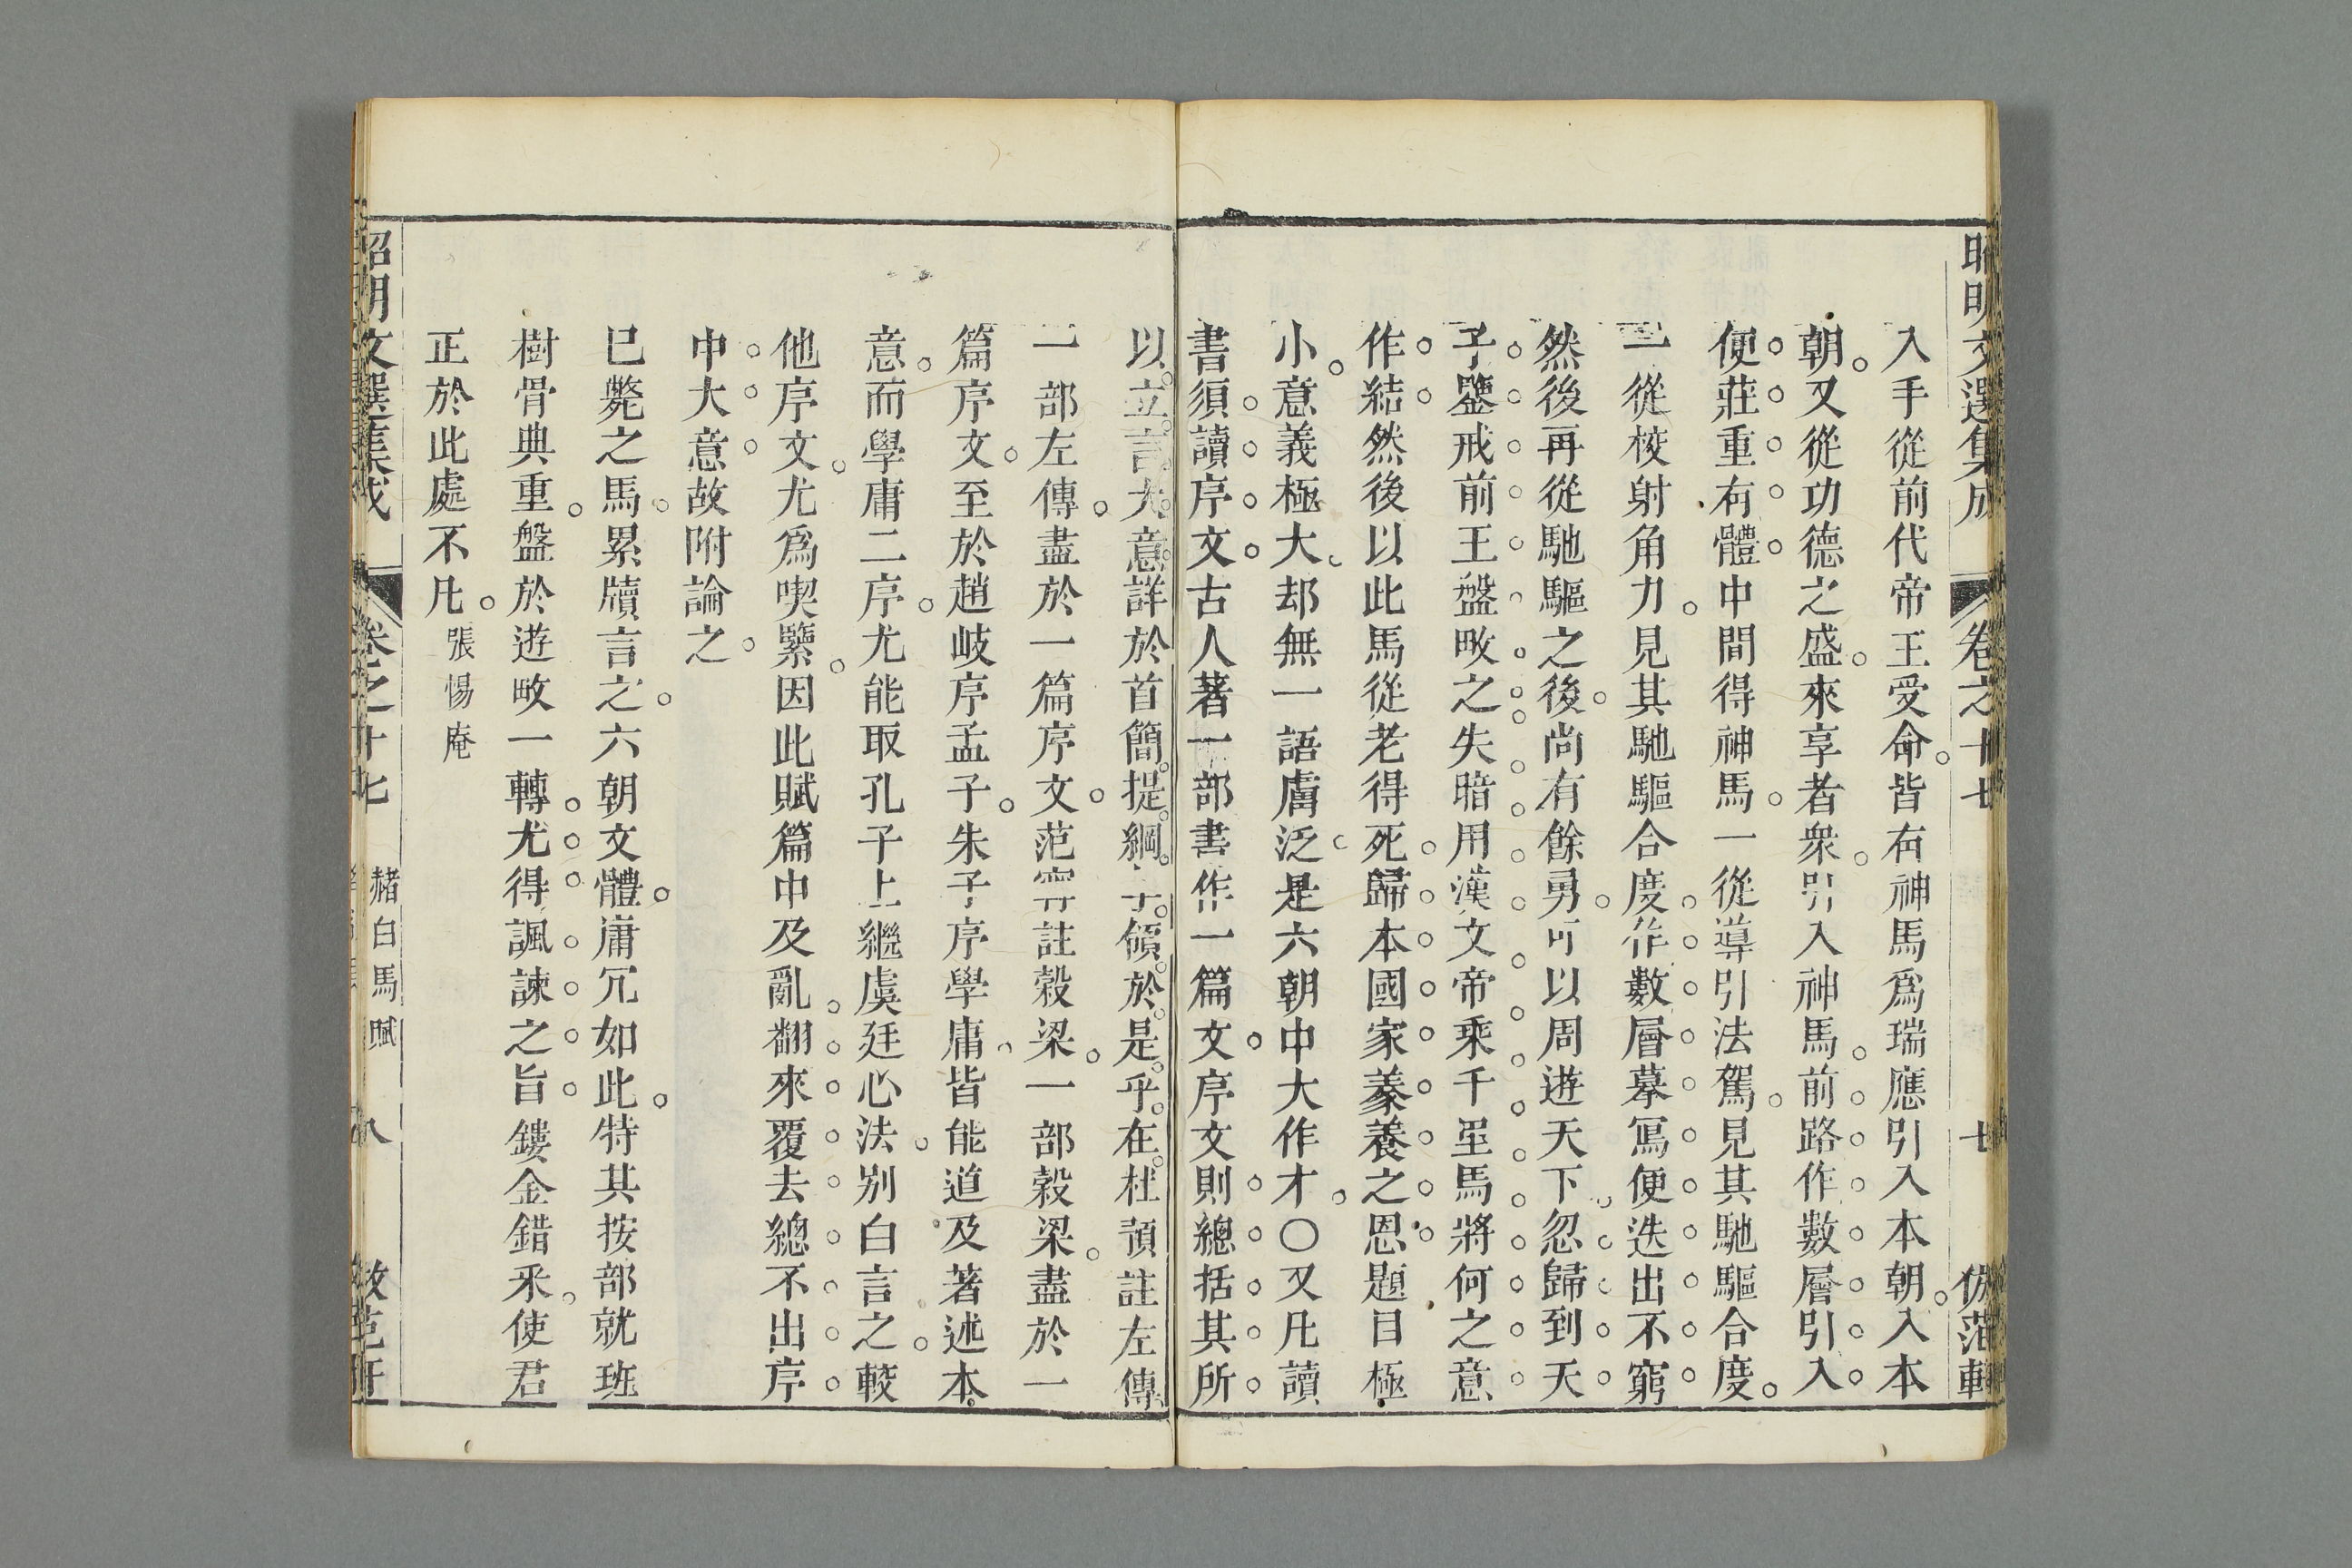 昭明文選集成 卷之十七 七 倣范軒
入手從前代帝王受命皆有神馬爲瑞應引入本朝入本
朝又從功德之盛來享者衆引入神馬前路作數層引入
便莊重有體中間得神馬一從導引法駕見其馳驅合度
一從校射角力見其馳驅合度作數層摹冩便迭出不窮
然後再從馳驅之後尚有餘勇可以周遊天下忽歸到天
子鑒戒前王盤畋之失暗用漢文帝乘千里馬將何之意
作結然後以此馬從老得死歸本國家豢養之恩題目極
小意義極大却無一語膚泛是六朝中大作才〇又凡讀
書須讀序文古人著一部書作一篇文序文則總括其所
以立言大意詳於首簡提綱 領於是乎在杜預註左傳
一部左傳盡於一篇序文范甯註穀梁一部穀梁盡於一
篇序文至於趙岐序孟子朱子序學庸皆能道及著述本
意而學庸二序尤能取孔子上繼虞廷心法別白言之較
他序文尤爲喫緊因此賦篇中及亂翻來覆去總不出序
中大意故附論之
已斃之馬累牘言之六朝文體庸冗如此特其按部就班
樹骨典重盤於遊畋一轉尤得諷諫之旨鏤金錯采使君
正於此處不凡 張惕庵
昭明文選集成 卷之十七 赭白馬賦 八 倣范軒